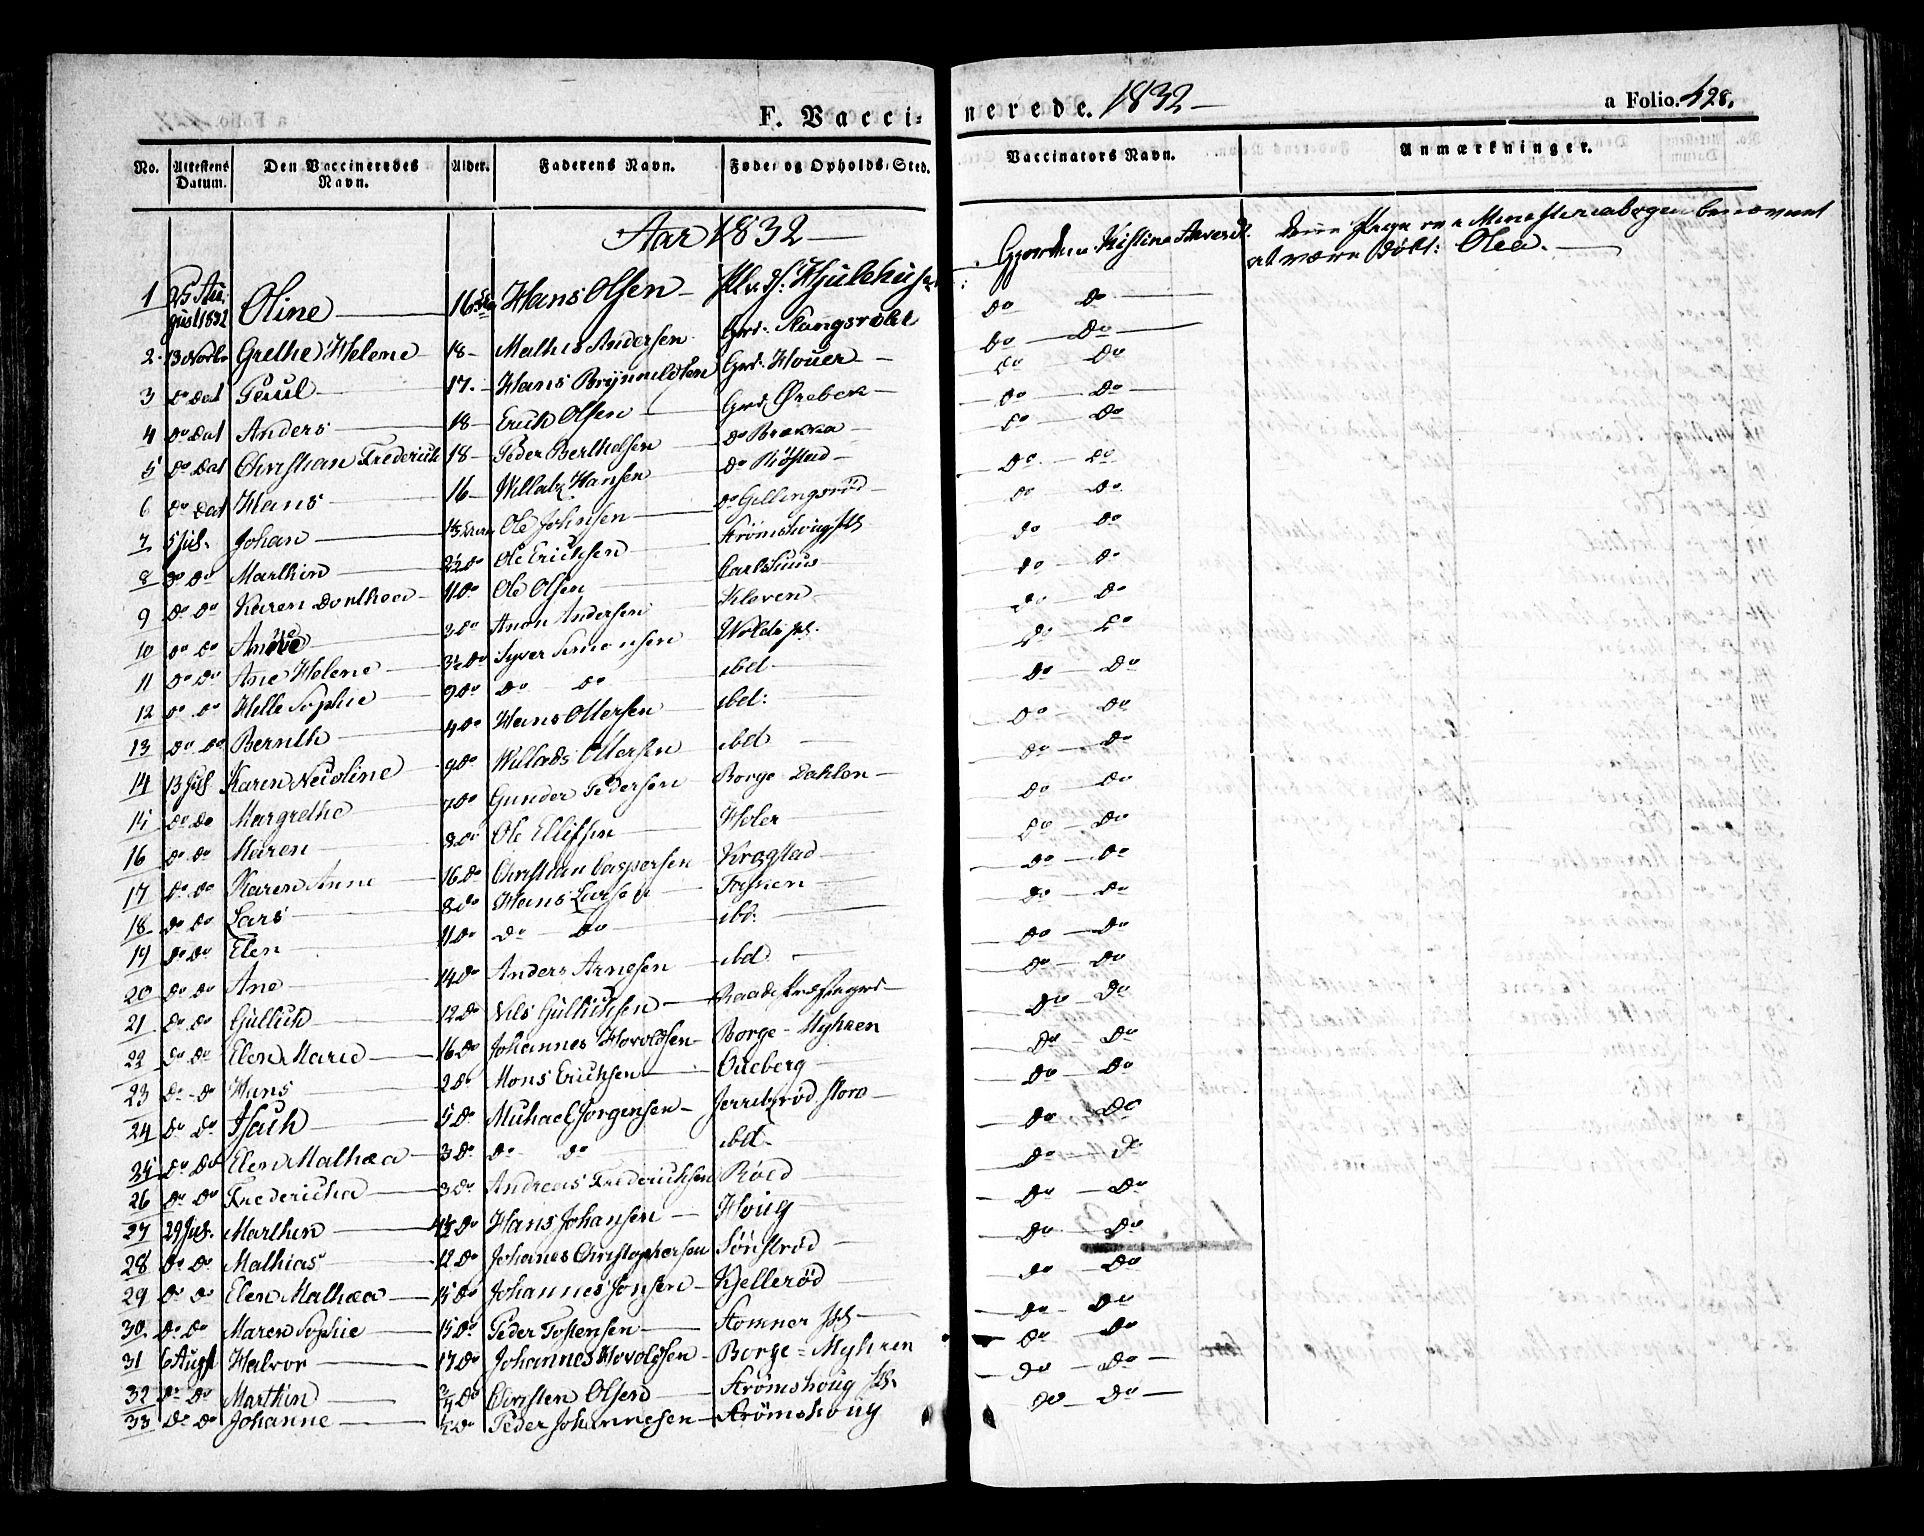 F. Vacci⸗nerede. 1832 —
a Folio. 428.
No. Attestens Datum. Den Vaccineredes Navn. Alder. Faderens Navn. Føde⸗ og Opholds⸗Sted. Vaccinators Navn. Anmærkninger.
Aar 1832 —
1 25 August 1832 Oline — 16 Hans Olsen —
at være Døbt: Olea. —
2. 13 Novbr Grethe Helene — 18 — Mathis Andersen Grd. Do Do
3 Do Dat Poul — 17. — Hans Brynnildsen Grd. Houer — Do Do
4 Do Dat Anders — 18 — Erich Olsen — Grd. Ørebek — Do Do
5 Do Dat Christian Frederich 18 — Peder Berthelsen Do Brekka — Do Do
6 Do Dat Hans — 16 — Hansen Do Röstad — Do Do
7 5 Jul. Johan — Ole Johnsen — Do Gillingsröd — Do Do
8 Do Do Marthin — 2½ Do Ole Erichsen — Do Do
9 Do Do Karen Dorthea — 11 Do Ole Olsen — Do Do
10 Do Do 3 Do Anon Andersen Kleven — Do Do
11 Do Do Ane Helene — 3½ Do Syver Simensen Do Do
12 Do Do Helle Sophie — 9 Do Do Do ibd — Do Do
13 Do Do Bernth — 4 Do Hans Ottersen ibd: Do Do
14 13 Jul Karen Neoline — 9 Do Willads Ottersen ibd — Do Do
15 Do Do Margrethe — 7 Do Gunder Pedersen Borge Dahlen — Do Do
16 Do Do Maren — 8 Do Ole Ellefsen — Holer — Do Do
17 Do Do Karen Anne — 16 Do Christian Caspersen Krogstad — Do Do
18 Do Do Lars — 8 Do Hans Larsen — Do Do
19 Do Do Elen — 11 Do Do Do ibd. — Do Do
20 Do Do Ane — 14 Do Anders Arnesen ibd — Do Do
21 Do Do Gullich — 12 Do Nils Gullichsen — Raade Do Do
22 Do Do Elen Marie — 16 Do Johannes Hovoldsen — Borge — Myhren Do Do
23 Do Do Hans — 2 Do Mons Erichsen — Oueberg — Do Do
24 Do Do Isach — 5 Do Michael Jörgensen — Jerreksröd store — Do Do
25 Do Do Elen Mathea — 3 Do Do Do ibd — Do Do
26 Do Do Fredericha — 3 Do Andreas Frederichsen Röed — Do Do
27 29 Jul. Marthin — Do Hans Johansen — Houg — Do Do
28 Do Do Mathias — 12 Do Johanes Christophersen Sönströd — Do Do
29 Do Do Elen Mathea — 15 Do Johannes Jonsen — Kjelleröd — Do Do
30 Do Do Maren Sophie — 15 Do Peder Tostensen — Do Do
31 6 Augst Halvor — 17 Do Johannes Hovoldsen — Borge — Myhren Do Do
32 Do Do Marthin — ¾ Do Christen Olsen — Strömshoug Do Do —
33 Do Do Johanne — ½ Do Peder Johannesen — Strömshoug Do Do —